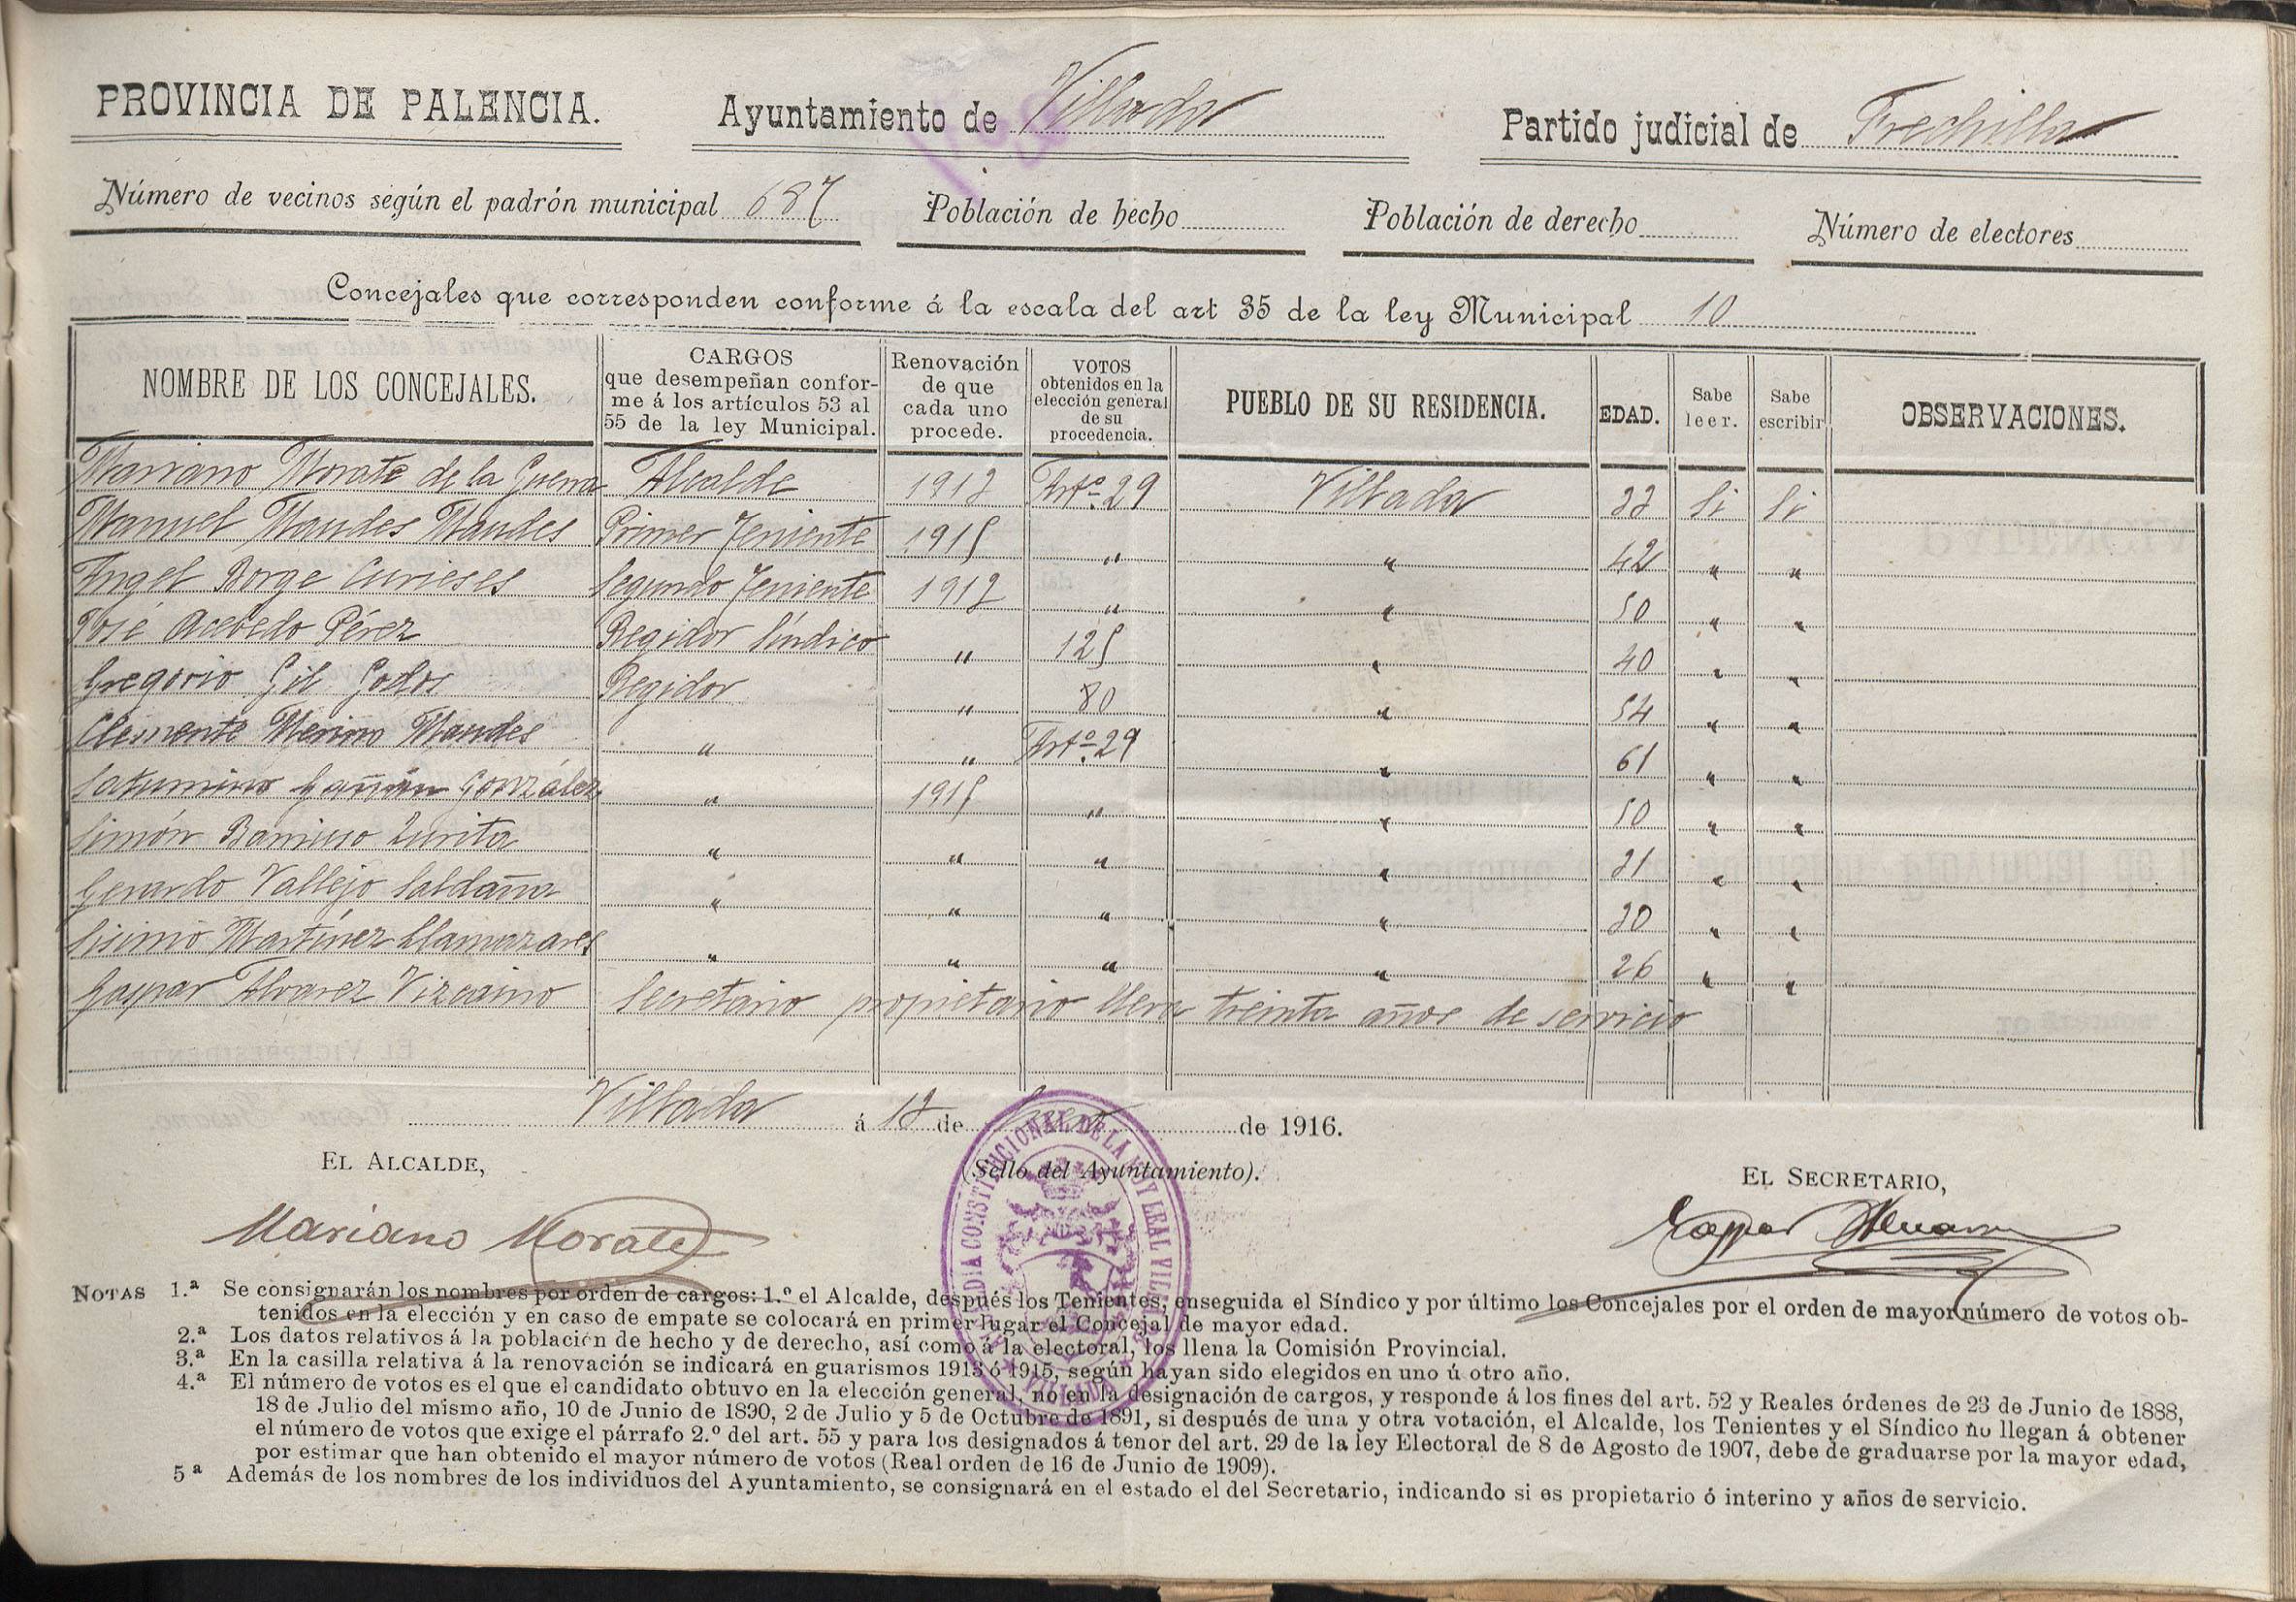 PROVINCIA DE PALENCIA. Ayuntamiento de Villada Partido judicial de Frechilla
Número de vecinos según el padrón municipal 687 Población de hecho Población de derecho Número de electores
Concejales que corresponden conforme á la escala del art 35 de la ley Municipal 10
NOMBRE DE LOS CONCEJALES. CARGOS que desempeñan conforme á los artículos 53 al 55 de la ley Municipal. Renovación de que cada uno procede. VOTOS obtenidos en la elección general de su procedencia. PUEBLO DE SU RESIDENCIA. EDAD. Sabe leer. Sabe escribir OBSERVACIONES.
Mariano Morate de la Guerra Alcalde 1913 Artº. 29 Villada 33 Si Si
Manuel Maudes Maudes Primer Teniente 1915 " " 42 " "
Angel Borge Curieses Segundo Teniente 1913 " " 50 " "
José Acebedo Pérez Regidor Síndico " 125 " 40 " "
Gregorio Gil Godos Regidor " 80 " 54 " "
Clemente Merino Maudes " " Artº. 29 " 61 " "
Saturnino Gañán González " 1915 " " 50 " "
Simón Barriuso Zurita " " " " 31 " "
Gerardo Vallejo Saldaña " " " " 30 " "
Sisinio Martínez Llamazares " " " " 26 " "
Gaspar Alvarez Vizcaino Secretario propietario lleva treinta años de servicio
Villada á 13 de Enero de 1916.
EL ALCALDE, (Sello del Ayuntamiento). EL SECRETARIO,
Mariano Morate Gaspar Alvarez
NOTAS 1.ª Se consignarán los nombres por orden de cargos: 1.º el Alcalde, después los Tenientes, enseguida el Síndico y por último los Concejales por el orden de mayor número de votos ob-
tenidos en la elección y en caso de empate se colocará en primer lugar el Concejal de mayor edad.
2.ª Los datos relativos á la población de hecho y de derecho, así como á la electoral, los llena la Comisión Provincial.
3.ª En la casilla relativa á la renovación se indicará en guarismos 1913 ó 1915, según hayan sido elegidos en uno ú otro año.
4.ª El número de votos es el que el candidato obtuvo en la elección general, no en la designación de cargos, y responde á los fines del art. 52 y Reales órdenes de 23 de Junio de 1888,
18 de Julio del mismo año, 10 de Junio de 1890, 2 de Julio y 5 de Octubre de 1891, si después de una y otra votación, el Alcalde, los Tenientes y el Síndico no llegan á obtener
el número de votos que exige el párrafo 2.º del art. 55 y para los designados á tenor del art. 29 de la ley Electoral de 8 de Agosto de 1907, debe de graduarse por la mayor edad,
por estimar que han obtenido el mayor número de votos (Real orden de 16 de Junio de 1909).
5 ª Además de los nombres de los individuos del Ayuntamiento, se consignará en el estado el del Secretario, indicando si es propietario ó interino y años de servicio.